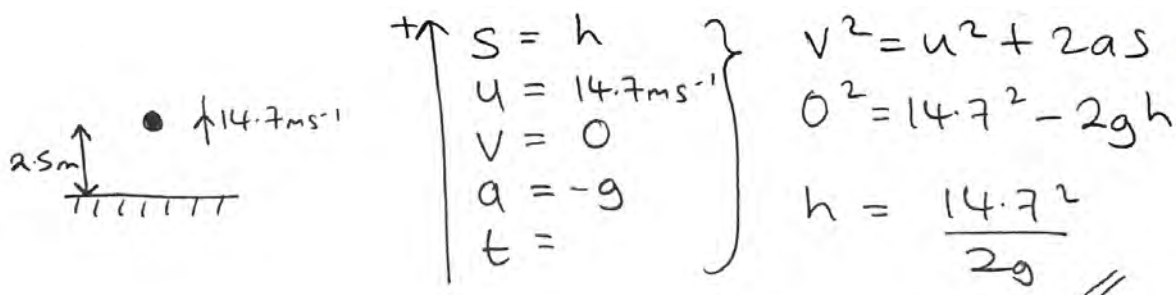 2.5m
14.7ms⁻¹
+
s = h
u = 14.7ms⁻¹
v = 0
a = -g
t =
v² = u² + 2as
0² = 14.7² - 2gh
h = 14.7²
2g